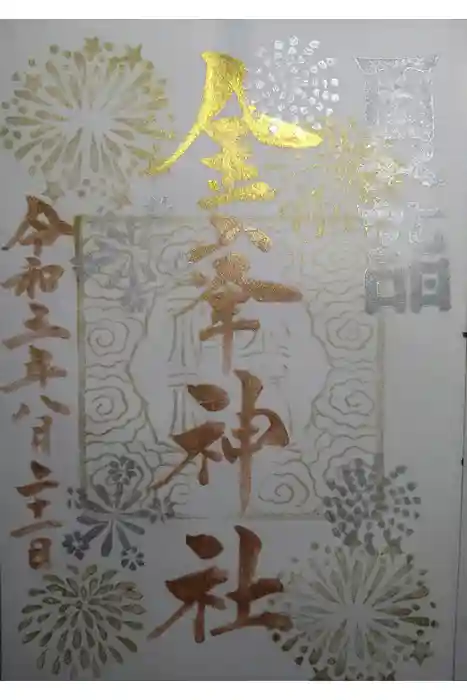 金峯神社
令和三年八月二十一日